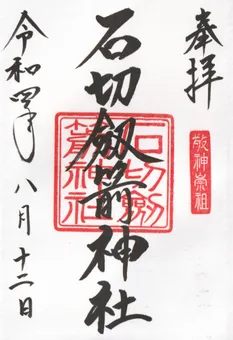 奉拝
敬神崇祖
石切劔箭神社
石切劔箭神社
令和四年八月十二日